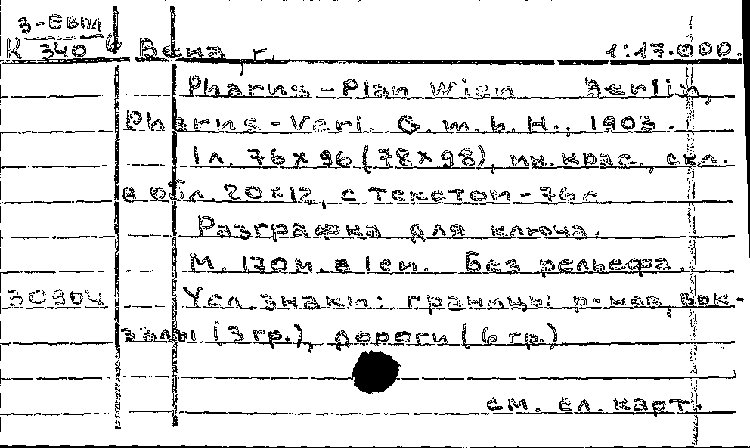 З-Евш
К 340 Вена, г. 1:17.000.
Pharus-Plan Wien Berlin,
Pharus-Verl. G.m.b.H., 1903.
1 л. 76х96 (78х98), мн.крас., скл.
в обл. 20х12, с текстом-76 с
Разграфка для ключа.
М. 170м. в 1 см. Без рельефа.
30904 Усл.знаки: границы р-нов, вок-
залы (3 гр.), дороги (6 гр.)
см. сл. карт.